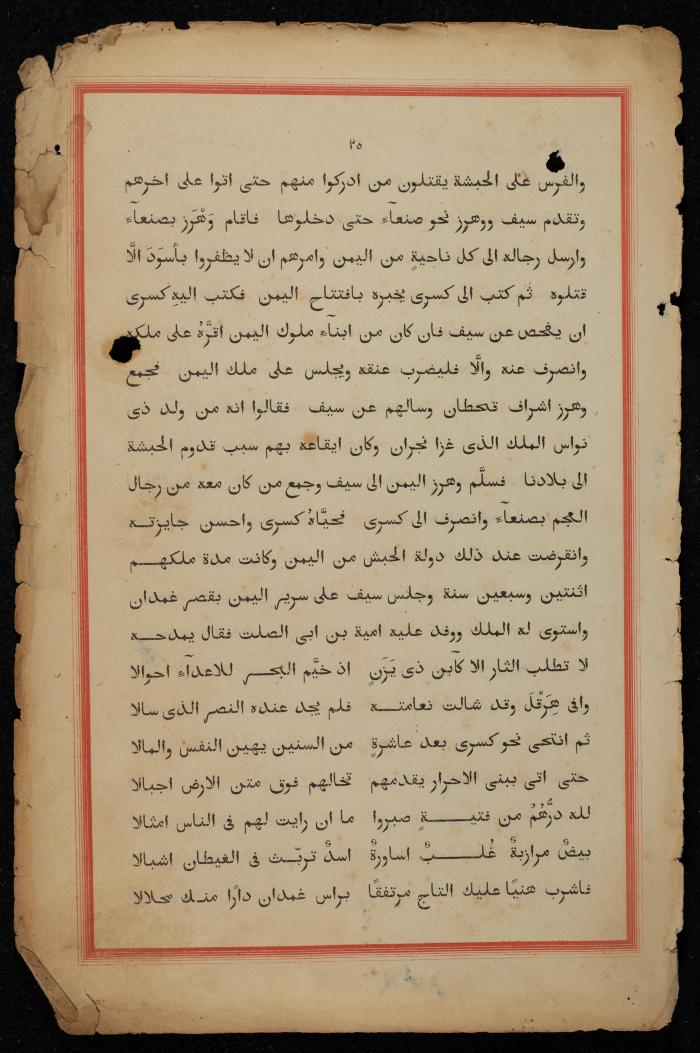 ٢٥
والفرس على الحبشة يقتلون من ادركوا منهم حتى اتوا على اخرهم
وتقدم سيف ووهرز نحو صنعآء حتى دخلوها فاقام وَهْرَز بصنعآء
وارسل رجاله الى كل ناحيةٍ من اليمن وامرهم ان لا يظفروا بأسوَدَ الَّا
قتلوه ثم كتب الى كسرى يخبره بافتتاح اليمن فكتب اليهِ كسرى
ان يفحص عن سيف فان كان من ابنآء ملوك اليمن اقرَّهُ على ملكه
وانصرف عنه والَّا فليضرب عنقه ويجلس على ملك اليمن فجمع
وهرز اشراف قحطان وسالهم عن سيف فقالوا انه من ولد ذى
نواس الملك الذى غزا نجران وكان ايقاعه بهم سبب قدوم الحبشة
الى بلادنا فسلَّم وهرز اليمن الى سيف وجمع من كان معه من رجال
العجم بصنعآء وانصرف الى كسرى فحيَّاهُ كسرى واحسن جايزتـه
وانقرضت عند ذلك دولة الحبش من اليمن وكانت مدة ملكهـم
اثنتين وسبعين سنة وجلس سيف على سرير اليمن بقصر غمدان
واستوى له الملك ووفد عليه امية بن ابى الصلت فقال يمدحـه
لا تطلب الثار الا كآبن ذى يَزَنٍ اذ خيَّم البحـر للاعدآء احوالا
وافى هِرَقْلَ وقد شالت نعامتـه فلم يجد عنده النصر الذى سالا
ثم انتحى نحو كسرى بعد عاشرةٍ من السنين يهين النفس والمالا
حتى اتى ببنى الاحرار يقدمهم تخالهم فوق متن الارض اجبالا
لله درُّهُمُ من فتيـةٍ صبروا ما ان رايت لهم فى الناس امثالا
بيضٌ مرازبةٌ غُلـبٌ اساورةٌ اسدٌ تربّـث فى الغيطان اشبالا
فاشرب هنيًا عليك التاج مرتفقًا براس غمدان دارًا منـك محلالا